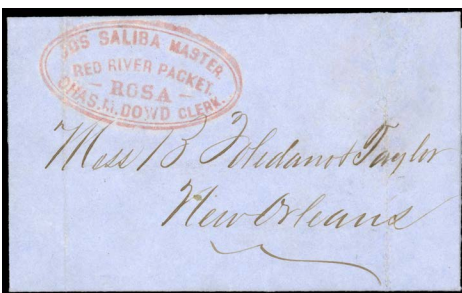 JOS SALIBA MASTER
RED RIVER PACKET.
- ROSA -
CHAS. H. DOWD CLERK.
Mess B Toledano & Taylor
New Orleans